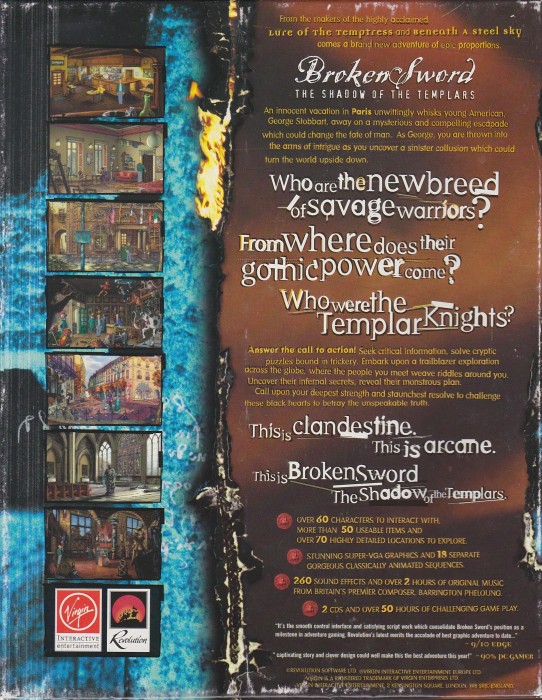 From the makers of the highly acclaimed
Lure of the Temptress and Beneath A Steel Sky
comes a brand new adventure of epic proportions.
Broken Sword
THE SHADOW OF THE TEMPLARS
An innocent vacation in Paris unwittingly whisks young American,
George Stobbart, away on a mysterious and compelling escapade
which could change the fate of man. As George, you are thrown into
the arms of intrigue as you uncover a sinister collusion which could
turn the world upside down.
Who are the new breed
of savage warriors?
From where does their
gothic power come?
Who were the
Templar Knights?
Answer the call to action! Seek critical information, solve cryptic
puzzles bound in trickery. Embark upon a trailblazer exploration
across the globe, where the people you meet weave riddles around you.
Uncover their infernal secrets, reveal their monstrous plan.
Call upon your deepest strength and staunchest resolve to challenge
these black hearts to betray the unspeakable truth.
This is clandestine.
This is arcane.
This is Broken Sword
The Shadow of the Templars.
OVER 60 CHARACTERS TO INTERACT WITH,
MORE THAN 50 USEABLE ITEMS AND
OVER 70 HIGHLY DETAILED LOCATIONS TO EXPLORE.
STUNNING SUPER-VGA GRAPHICS AND 18 SEPARATE
GORGEOUS CLASSICALLY ANIMATED SEQUENCES.
260 SOUND EFFECTS AND OVER 2 HOURS OF ORIGINAL MUSIC
FROM BRITAIN'S PREMIER COMPOSER, BARRINGTON PHELOUNG.
2 CDS AND OVER 50 HOURS OF CHALLENGING GAME PLAY.
"It's the smooth control interface and satisfying script work which consolidate Broken Sword's position as a
milestone in adventure gaming. Revolution's latest merits the accolade of best graphic adventure to date..."
- 9/10 EDGE
"captivating story and clever design could well make this the best adventure this year!" - 90% PC GAMER
Virgin
INTERACTIVE
entertainment
Revolution
©REVOLUTION SOFTWARE LTD. ©VIRGIN INTERACTIVE ENTERTAINMENT EUROPE LTD
VIRGIN IS A REGISTERED TRADEMARK OF VIRGIN ENTERPRISES LTD
VIRGIN INTERACTIVE ENTERTAINMENT, 2 KENSINGTON SQUARE, LONDON, W8 5RB, ENGLAND.